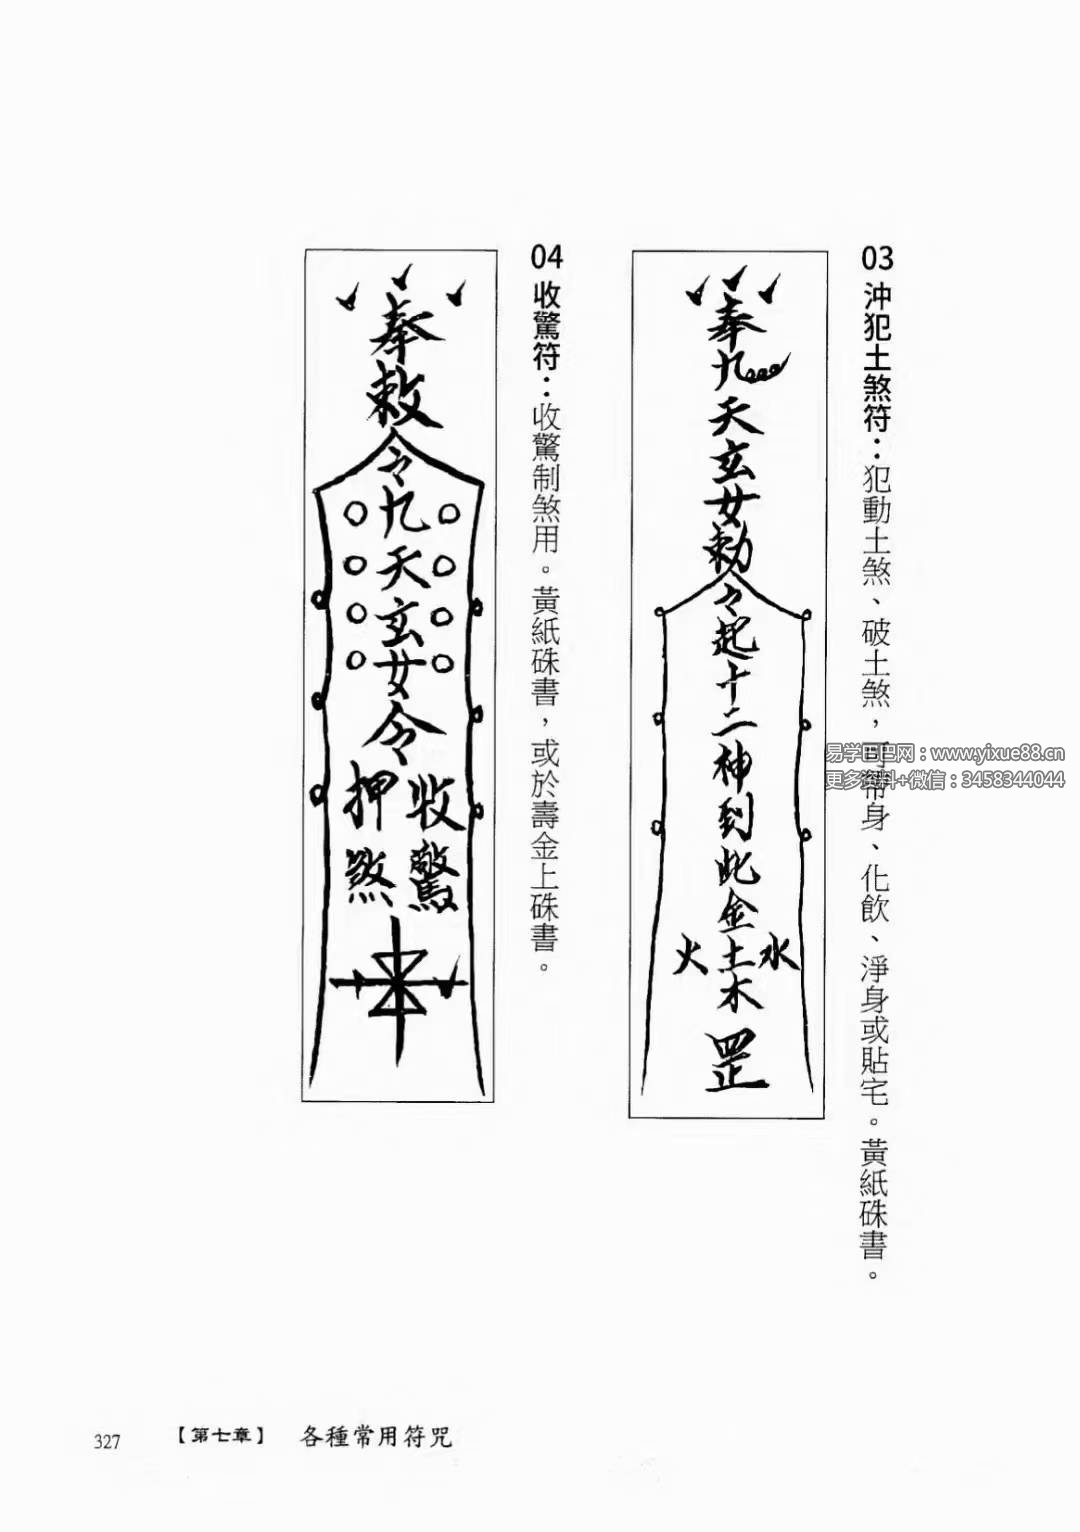 03 沖犯土煞符：犯動土煞、破土煞，可帶身、化飲、淨身或貼宅。黃紙硃書。
奉九天玄女勅令起十二神到此金土木罡
水
火
04 收驚符：收驚制煞用。黃紙硃書，或於壽金上硃書。
奉敕令九天玄女令
收驚
押煞
易学巴巴网：www.yixue88.cn
更多资料+微信：3458344044
327 【第七章】 各種常用符咒